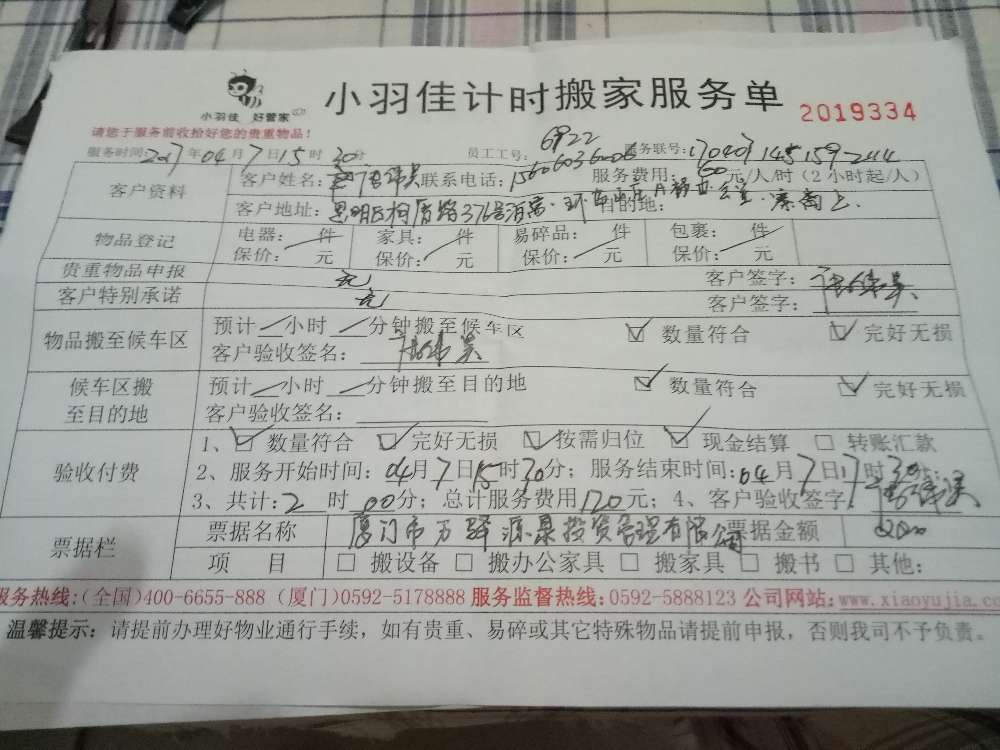 小羽佳计时搬家服务单
2019334
小羽佳 好管家
请您于服务前收拾好您的贵重物品！
服务时间：2017年04月7日15时30分 员工工号：6922 服务联号：
客户资料 客户姓名： 联系电话： 服务费用：60元/人/时（2小时起/人）
客户地址：思明区 目的地：
物品登记 电器： 件 家具： 件 易碎品： 件 包裹： 件
保价： 元 保价： 元 保价： 元 保价： 元
贵重物品申报 无 客户签字：
客户特别承诺 无 客户签字：
物品搬至候车区 预计 小时 分钟搬至候车区 数量符合 完好无损
客户验收签名：
候车区搬至目的地 预计 小时 分钟搬至目的地 数量符合 完好无损
客户验收签名：
验收付费 1、数量符合 完好无损 按需归位 现金结算 转账汇款
2、服务开始时间：04月7日15时30分；服务结束时间：04月7日17时30
3、共计：2时00分；总计服务费用120元；4、客户验收签字
票据栏 票据名称 厦门市万 源 投资管理有限公司 票据金额
项 目 搬设备 搬办公家具 搬家具 搬书 其他：
服务热线：(全国)400-6655-888 (厦门)0592-5178888 服务监督热线：0592-5888123 公司网站：www.xiaoyujia.co
温馨提示：请提前办理好物业通行手续，如有贵重、易碎或其它特殊物品请提前申报，否则我司不予负责。